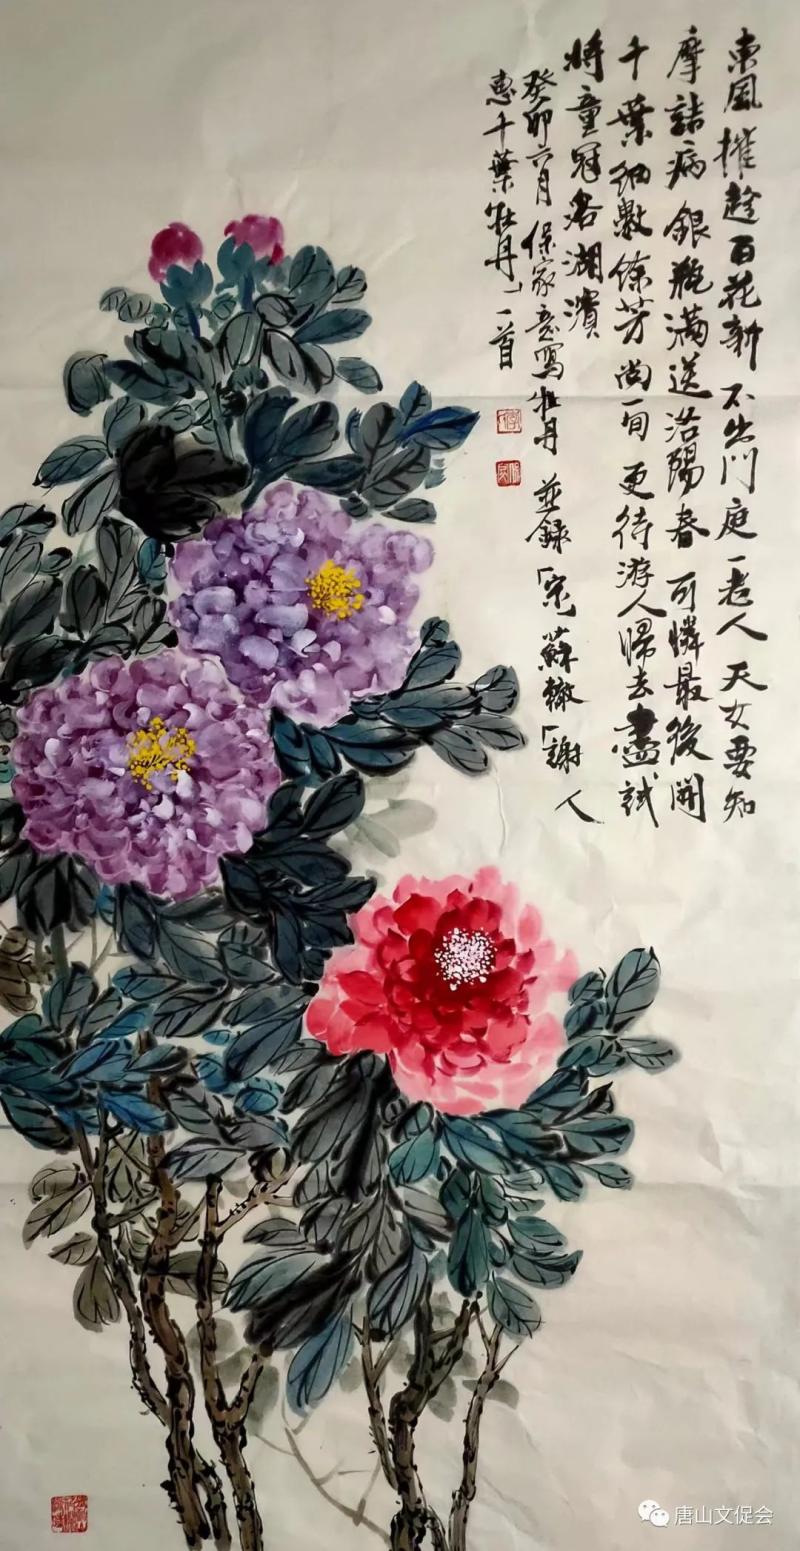 東風催趁百花新 不出門庭一老人 天女要知
摩詰病 銀瓶滿送洛陽春 可憐最後開
千葉細數餘芳尚一旬 更待游人歸去盡 試
將童冠浴湖濱
癸卯六月 保家意寫牡丹 並錄「宋蘇轍「謝人
惠千葉牡丹」一首
唐山文促会